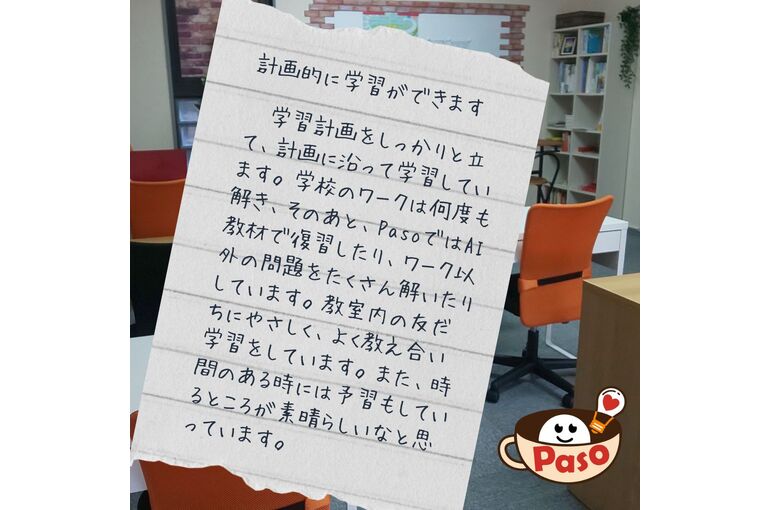 計画的に学習ができます
学習計画をしっかりと立
て、計画に沿って学習してい
ます。学校のワークは何度も
解き、そのあと、PasoではAI
教材で復習したり、ワーク以
外の問題をたくさん解いたり
しています。教室内の友だ
ちにやさしく、よく教え合い
学習をしています。また、時
間のある時には予習もしてい
るところが素晴らしいなと思
っています。
Paso